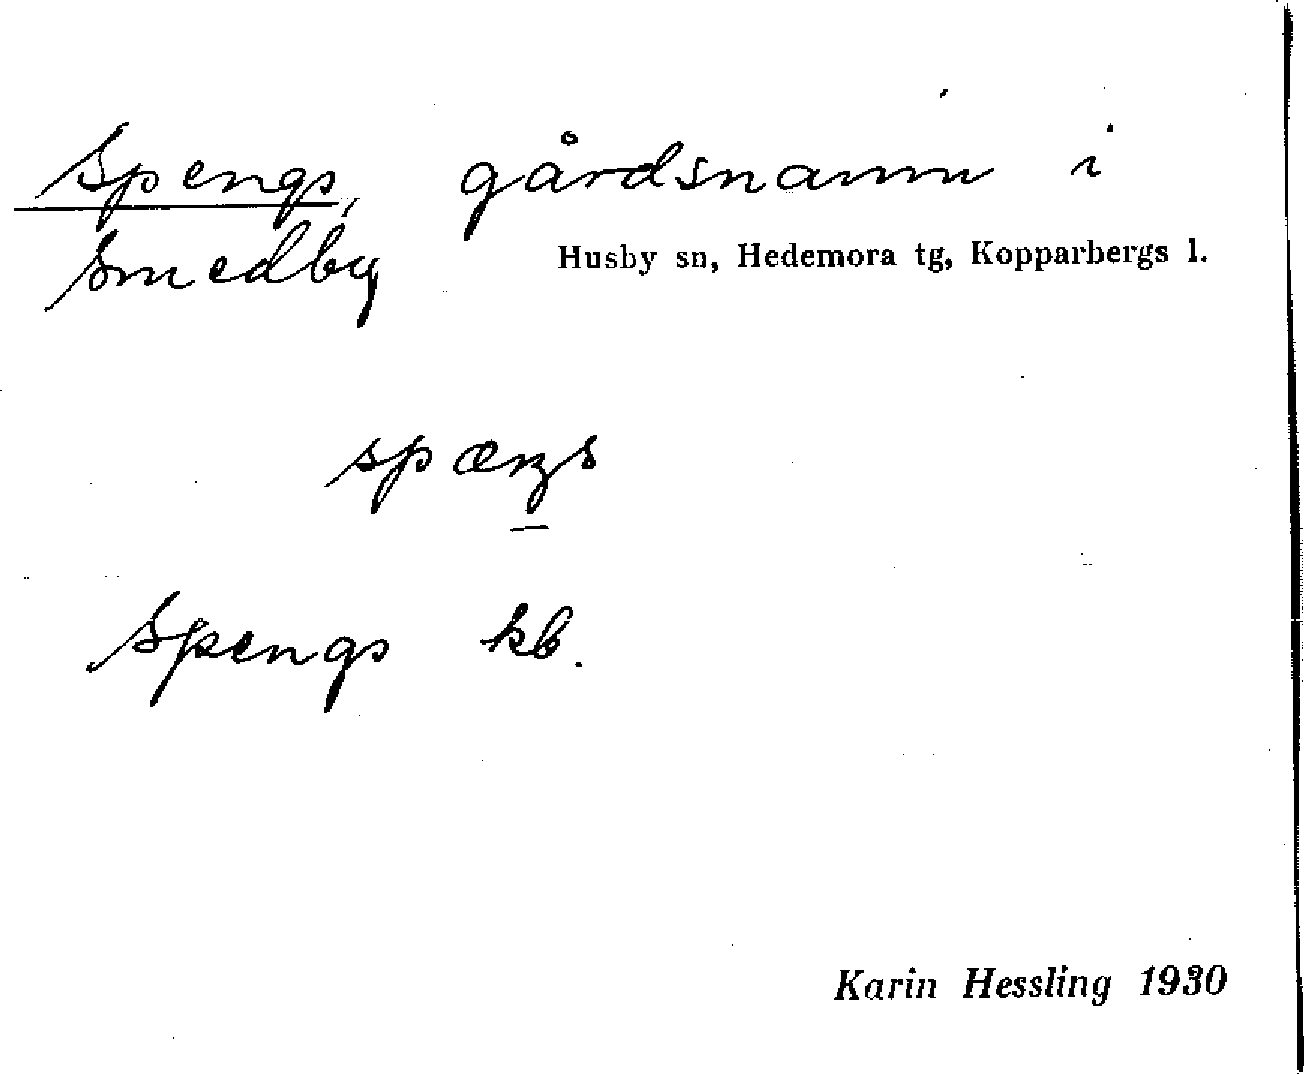 Spengs, gårdsnamn i
Smedby Husby sn, Hedemora tg, Kopparbergs l.
spæŋs
Spengs kb.
Karin Hessling 1930